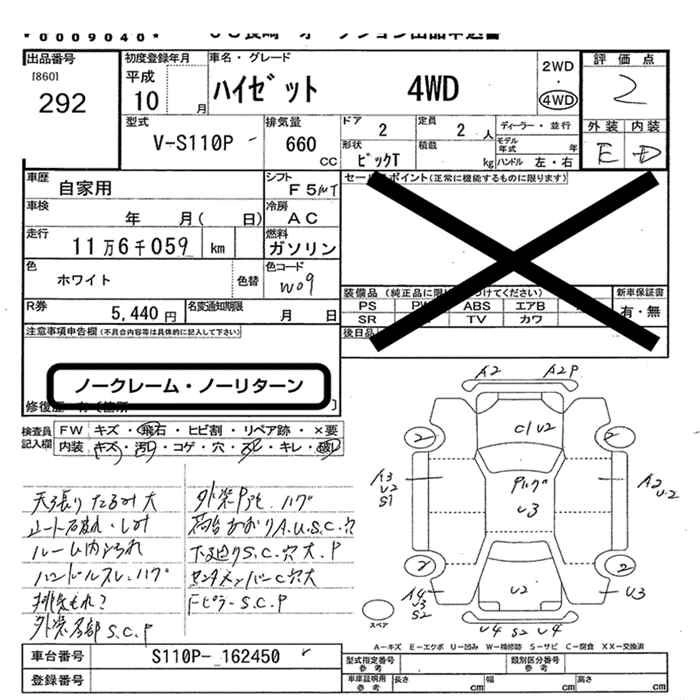 *0009040*
出品番号
[860]
292
初度登録年月
平成
10 月
車名・グレード
ハイゼット 4WD
2WD
・
4WD
評価点
2
外装 内装
E D
型式
V-S110P
排気量
660
cc
ドア 2
定員 2 人
ディーラー・並行
形状
ピックT
積載
kg
モデル年式 年
ハンドル 左・右
車歴
自家用
シフト
F5
車検
年 月( 日)
冷房
AC
走行
11万6千059 km
燃料
ガソリン
色
ホワイト
色替
色コード
W09
R券
5,440円
名変通知期限
月 日
セールスポイント(正常に機能するものに限ります)
装備品
PS PW ABS エアB
SR TV カワ
後日品
新車保証書
有・無
注意事項申告欄(不具合内容等は具体的に記入して下さい)
ノークレーム・ノーリターン
修復歴 有(箇所 )
検査員
記入欄
FW キズ・飛石・ヒビ割・リペア跡・×要
内装 キズ・汚れ・コゲ・穴・・キレ・破れ
天張りたるみ大
シート破れ・しみ
ルーム内汚れ
ハンドルスレ、ハゲ
排気もれ?
外装各部S.C.P
外装P ハゲ
荷台 A.U.S.C.穴
下廻りS.C.穴大.P
センターメンバーC穴大
Fピラー S.C.P
A2 A2P
C1 U2
2 2
A3
U2
S1
Pハゲ
U3
A2
U2
2 2
U2
A4
U3
S2
U3
U4 S2 U4
スペア
A-キズ E-エクボ U-凹み W-補修跡 S-サビ C-腐食 XX-交換済
車台番号
S110P- 162450
登録番号
型式指定番号
参考
類別区分番号
参考
車庫証明用
参考
長さ cm 幅 cm 高さ cm